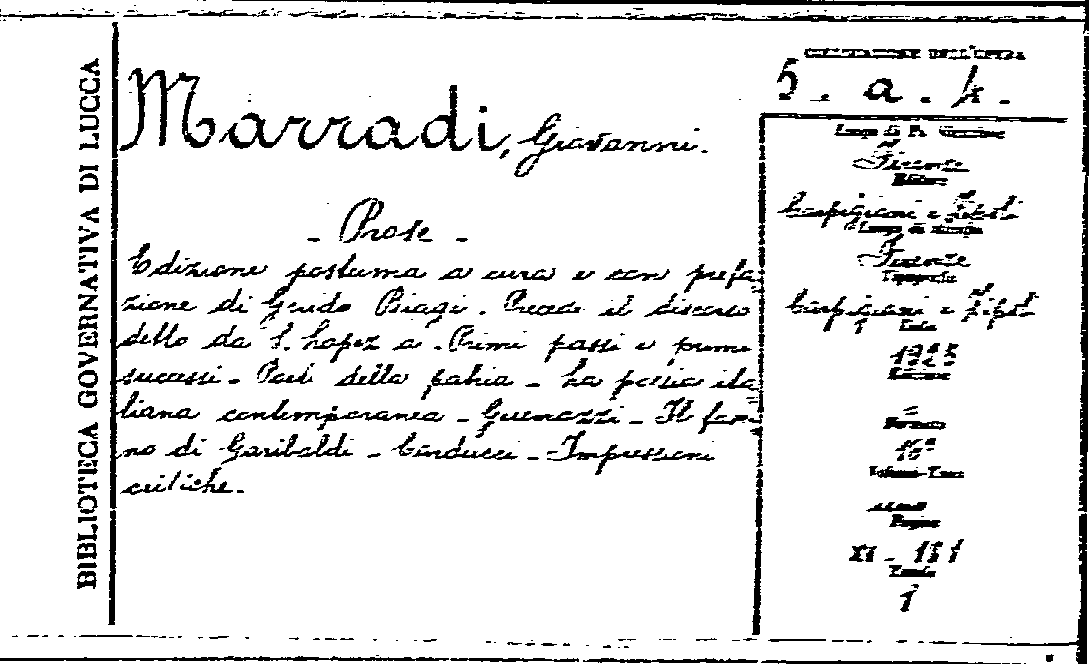 BIBLIOTECA GOVERNATIVA DI LUCCA
Marradi, Giovanni.
- Prose -
Edizione postuma a cura e con prefa
zione di Guido Biagi. Precede il discorso
detto da S. Lopez a. Primi passi e primi
successi - Poeti della patria - La poesia ita
liana contemporanea - Guerrazzi - Il
no di Garibaldi - Carducci - Impressioni
critiche.
COLLOCAZIONE DELL'OPERA
5. a. 4.
Luogo di Pubblicazione
Firenze
Editore
Carpigiani e Zipoli
Luogo di stampa
Firenze
Tipografia
Carpigiani e Zipoli
Data
Edizione
=
Formato
16°
Pagine
XI - 151
Tavole
1